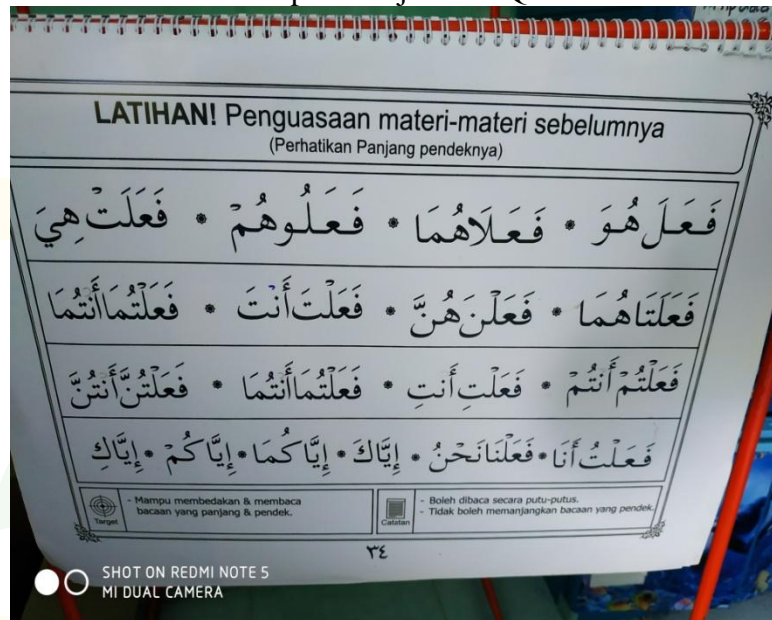 LATIHAN! Penguasaan materi-materi sebelumnya
(Perhatikan Panjang pendeknya)
فَعَلَ هُوَ * فَعَلَاهُمَا * فَعَلُوهُمْ * فَعَلَتْ هِيَ
فَعَلَتَاهُمَا * فَعَلْنَ هُنَّ * فَعَلْتَ أَنْتَ * فَعَلْتُمَا أَنْتُمَا
فَعَلْتُمْ أَنْتُمْ * فَعَلْتِ أَنتِ * فَعَلْتُمَا أَنْتُمَا * فَعَلْتُنَّ أَنْتُنَّ
فَعَلْتُ أَنَا * فَعَلْنَا نَحْنُ * إِيَّاكَ * إِيَّاكُمَا * إِيَّاكُمْ * إِيَّاكِ
Target
- Mampu membedakan & membaca
bacaan yang panjang & pendek.
Catatan
- Boleh dibaca secara putu-putus.
- Tidak boleh memanjangkan bacaan yang pendek.
٣٤
SHOT ON REDMI NOTE 5
MI DUAL CAMERA